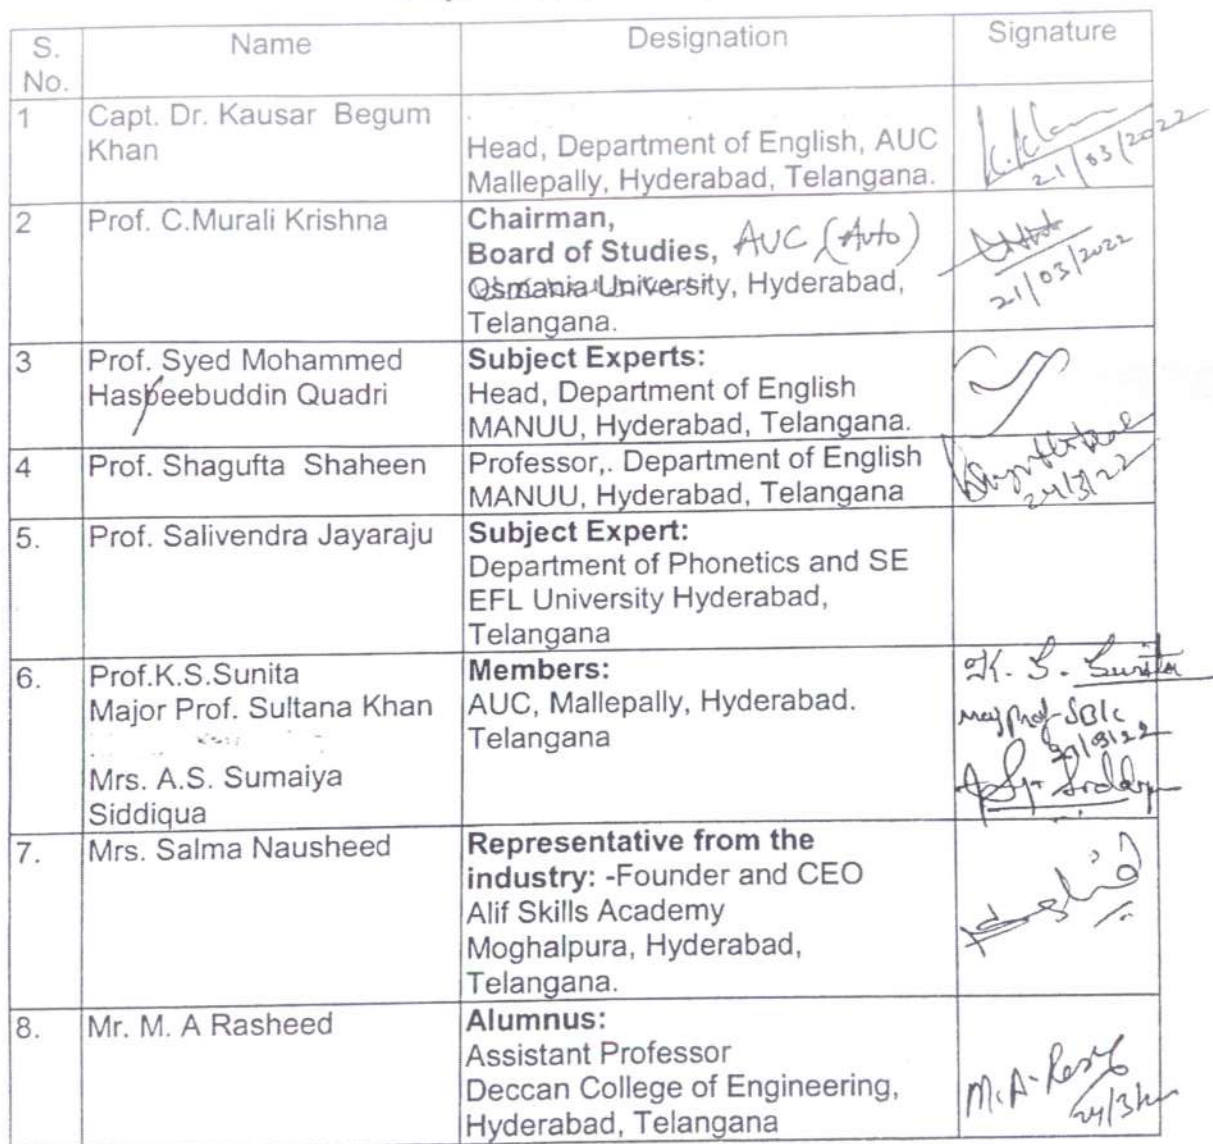 S. No.
Name
Designation
Signature
1
Capt. Dr. Kausar Begum
Khan
Head, Department of English, AUC
Mallepally, Hyderabad, Telangana.
21/03/2022
2
Prof. C.Murali Krishna
Chairman,
Board of Studies, AUC (Auto)
Osmania University, Hyderabad,
Telangana.
21/03/2022
3
Prof. Syed Mohammed
Hasbeebuddin Quadri
Subject Experts:
Head, Department of English
MANUU, Hyderabad, Telangana.
4
Prof. Shagufta Shaheen
Professor,. Department of English
MANUU, Hyderabad, Telangana
24/3/22
5.
Prof. Salivendra Jayaraju
Subject Expert:
Department of Phonetics and SE
EFL University Hyderabad,
Telangana
6.
Prof.K.S.Sunita
Major Prof. Sultana Khan
Mrs. A.S. Sumaiya
Siddiqua
Members:
AUC, Mallepally, Hyderabad.
Telangana
K. S. Sunita
7.
Mrs. Salma Nausheed
Representative from the
industry: -Founder and CEO
Alif Skills Academy
Moghalpura, Hyderabad,
Telangana.
8.
Mr. M. A Rasheed
Alumnus:
Assistant Professor
Deccan College of Engineering,
Hyderabad, Telangana